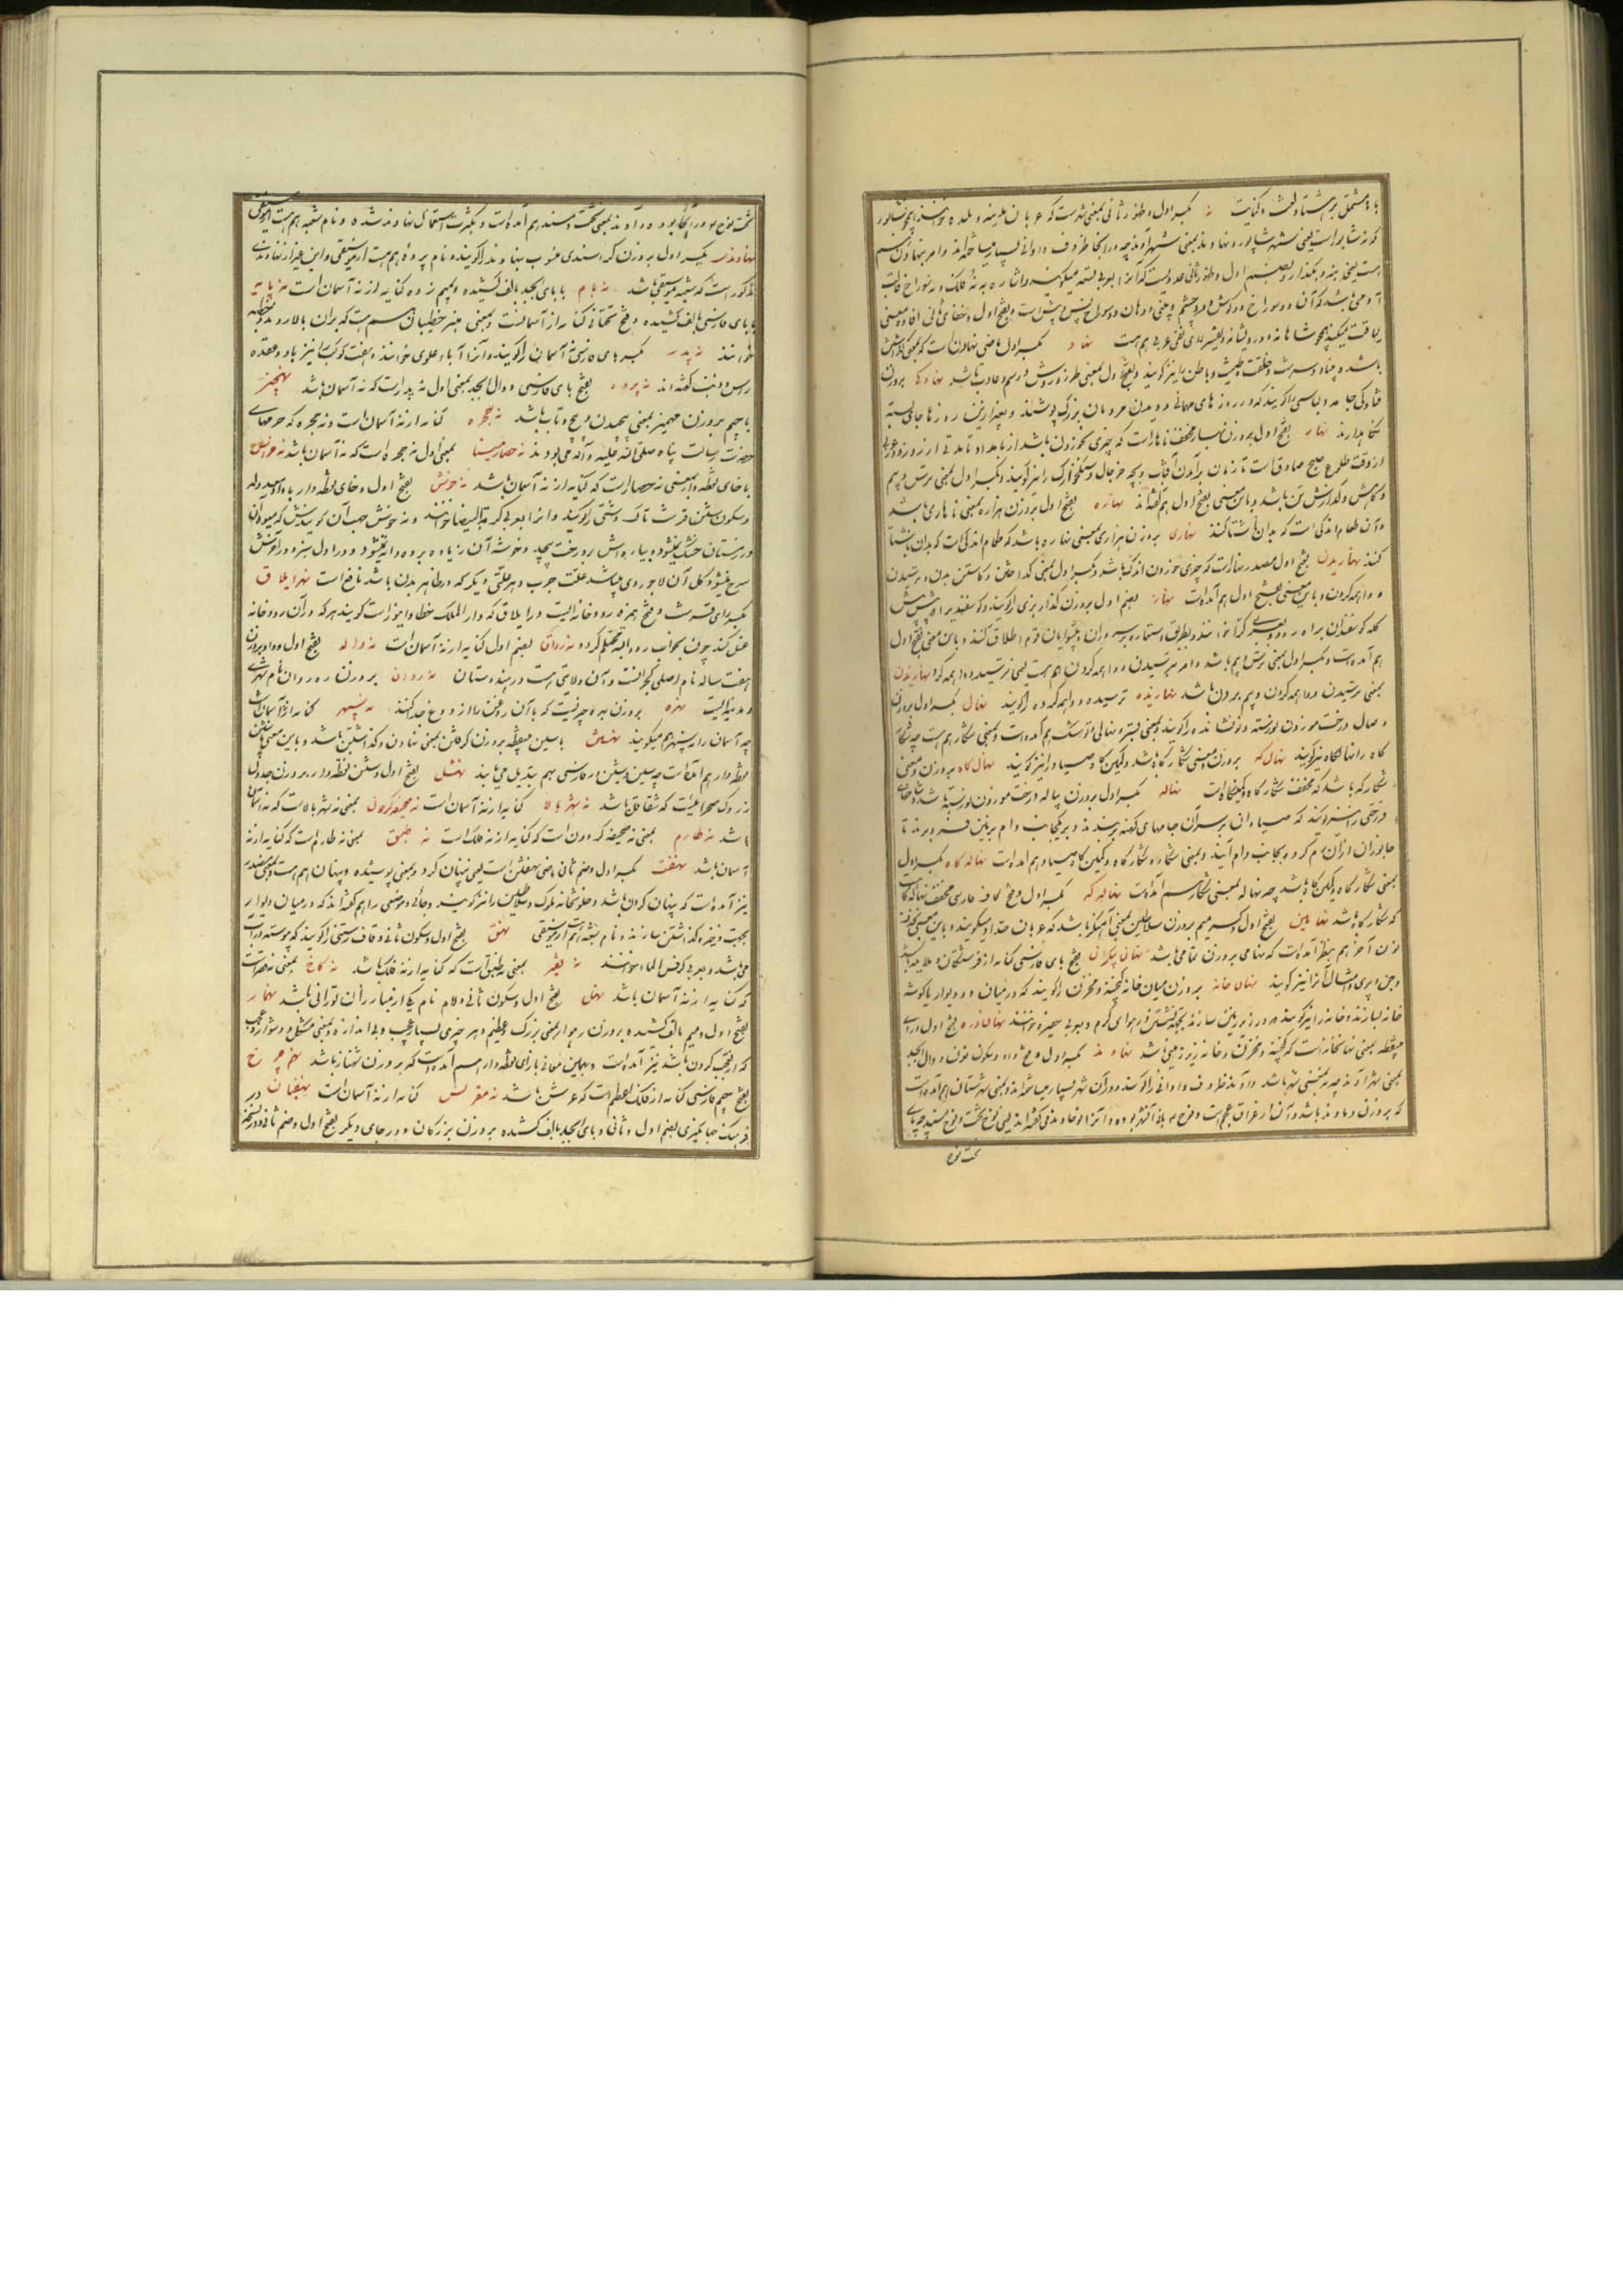 با مشتمل بر هشتاد لغت و کنایت نه بکسر اول و ظهور ثانی بمعنی شهر است که عربان مدینه و بلده خوانند همچو نشابور
که نه شابور است یعنی شهر شاپور و نهاوند بمعنی شهر آوند چه در آنجا ظروف و اوانی بسیار میساخته‌اند و امر بنهادن هم
هست یعنی بنه و بگذار و بضم اول و ظهور ثانی عددیست که آنرا بعربی تسعه میگویند و اشاره به نه فلک و نه سوراخ قالب
آدمی باشد که آن دو سوراخ دو گوش و دو چشم و بینی و دهان و سوراخ پس و پیش است و بفتح اول و خفای ثانی افاده معنی
لیاقت میکند همچو شاهانه و درویشانه و بعربی هم هست نهاد بکسر اول ماضی نهادن است که بمعنی گذاشتن
باشد و بنیاد و سرشت و خلقت و طینت و باطن را نیز گویند و بفتح اول بمعنی طرز و روش و رسم و عادت باشد نهادکی بروزن
جامه و لباسی را گویند که در روزهای مهمانی و دیدن مردمان بزرگ پوشند و بغیر از این روزها جای بسته
نگاه دارند نهار بفتح اول بروزن بهار مخفف ناهار است که چیزی نخوردن باشد از بامداد تا مدتی از روز و در عربی
از وقت طلوع صبح صادق است تا زمان برآمدن آفتاب و بچه خرچال و سنگخوارک را نیز گویند و بکسر اول بمعنی ترس و بیم
و کاهش و گدازش تن باشد و باین معنی بفتح اول هم گفته‌اند نهاره بفتح اول بروزن هزاره بمعنی ناهاری باشد
و آن طعام اندکی است که بدان ناشتا کنند نهاری بروزن هزاری بمعنی نهاره باشد که طعام اندکی است که بدان ناشتا
کنند نهاریدن بفتح اول مصدر نهار است که چیزی خوردن اندک باشد و بکسر اول بمعنی گداختن و کاستن بدن و ترسیدن
و واهمه کردن و باین معنی بفتح اول هم آمده است نهاز بضم اول بروزن گداز بزی را گویند و گوسفند پیشرو
گله گوسفندان براه رود و بعربی کراز خوانند و بطریق استعاره بر سروران و پیشوایان قوم اطلاق کنند و باین معنی بفتح اول
هم آمده است و بکسر اول بمعنی ترس و بیم باشد و امر به ترسیدن و واهمه کردن هم هست یعنی بترس و واهمه کن نهازیدن
بمعنی ترسیدن و واهمه کردن و بیم بردن باشد نهازیده ترسیده و واهمه کرده را گویند نهال بکسر اول بروزن
وصال درخت موزون نورسته و نونشانده را گویند و بمعنی بستر و نهالی و توشک هم آمده است و بمعنی شکار هم هست چه شکار
گاه را نهالگاه نیز گویند نهال که بروزن و معنی شکارگاه باشد و کمین‌گاه صیاد را نیز گویند نهال گاه بروزن و معنی
شکارگه باشد که مخفف شکارگاه و کمینگاه است نهاله بکسر اول بروزن پیاله درخت موزون نورسته باشد و شاخهای
درختی را نیز گویند که صیادان بر سر آن جامهای کهنه بربندند و بر یکجانب دام بر زمین فرو برند تا
جانوران از آن رم کرده بجانب دام آیند و بمعنی شکار و شکارگاه و کمین‌گاه صیاد هم آمده است نهاله گاه بکسر اول
بمعنی شکارگاه و کمین‌گاه باشد چه نهاله بمعنی شکار هم آمده است نهاله که بکسر اول و فتح کاف فارسی مخفف نهاله گاه است
که شکارگاه باشد نهامین بفتح اول و کسر میم بروزن سلاطین بمعنی آهنگر باشد که عربان حداد میگویند و باین معنی بحذف
نون آخر هم بنظر آمده است که نهامی بروزن تمامی باشد نهان پیکران بفتح بای فارسی کنایه از فرشتگان و ملایکه باشد
و جن و پری و امثال آنرا نیز گویند نهان خانه بروزن میان خانه گنجینه و مخزن را گویند که در میان دو دیوار یا گوشه
خانه بسازند و خانه را نیز گویند که در زیر زمین سازند بجهة نشستن در هوای گرم و بعربی خوانند نهان دره بفتح اول و رای
بینقطه بمعنی نهانخانه است که گنجینه و مخزن و خانه زیر زمینی باشد نهاوند بکسر اول و فتح واو و سکون نون و دال ابجد
بمعنی شهر آوند چه نه بمعنی شهر باشد و آوند ظروف و اوانی را گویند و در آن شهر بسیار میساخته‌اند و بمعنی شهرستان هم آمده است
که بروزن دماوند باشد و آن از عراق عجم است و نوح بانی آن شهر بوده و آنرا نوحاوند می گفته‌اند یعنی نوح تخت و نوح مسند چه پای
تخت نوح
تخت نوح در آنجا بوده و آوند بمعنی تخت و مسند هم آمده است و بکثرت استعمال نهاوند شده و نام شعبه هم هست از موسیقی
نهاوندی بکسر اول بروزن که اسندی منسوب بنهاوند را گویند و نام پرده هم هست از موسیقی و این غیر از نهاوندی
مذکور است که شعبه موسیقی باشد نه بام با بای ابجد بالف کشیده و بمیم زده کنایه از نه آسمان است نه پایه
با بای فارسی بالف کشیده و فتح تحتانی کنایه از نه آسمانست و بمعنی منبر خطیبان هم هست که بران بالا روند و خطبه
خوانند نه پدر بکسر بای فارسی نه آسمان را گویند و آنرا آباء علوی خوانند و هفت کوکب را نیز با دو عقده
راس و ذنب گفته‌اند نه پرده بفتح بای فارسی و دال ابجد بمعنی اول نه پدر است که نه آسمان باشد نهچیز
با جیم بروزن مهمیز بمعنی پیچیدن و پیچ و تاب باشد نه حجره کنایه از نه آسمان است و نه حجره که حرمهای
حضرت رسالت پناه صلی الله علیه و آله می بودند نه حصار مینا بمعنی اول نه حجره است که نه آسمان باشد نه خراس
با خای نقطه‌دار بمعنی نه حصار است که کنایه از نه آسمان باشد نه خونش بفتح اول و خای نقطه‌دار با واو معدوله
و سکون شین قرشت تاک دشتی را گویند و آنرا بعربی کرمة البیضا خوانند و نه خونش جهت آن گویندش که میوه آن
در زمستان خشک نمیشود و بیاره‌اش بر درخت پیچد و خوشه آن زیاده بر ده دانه نمیشود و در اول سبز و در آخرش
سرخ میشود و گل آن لاجوردی میباشد علت جرب و هر علتی دیگر که در ظاهر بدن باشد نافع است نهر ایلاق
بکسر رای قرشت و فتح همزه رودخانه ایست در ایلاق که دارالملک خطا و ایغور است گویند هرکه در آن رودخانه
غسل کند چون بخواب رود البته محتلم گردد نه رواق بضم اول کنایه از نه آسمان است نه واله بفتح اول و واو بروزن
هفت ساله نام اصلی گجراتست و آن ولایتی است در هندوستان نهروان بروزن رهروان نام شهری
و مدینه ایست نهره بروزن بهره چیزیست که با آن روغن را از دوغ جدا کنند نه سپهر کنایه از نه آسمان است
چه آسمان را سپهر هم میگویند نهستن با سین بینقطه بروزن گرفتن بمعنی نهادن و گذاشتن باشد و باین معنی با شین
نقطه‌دار هم آمده است چه سین و شین در فارسی بهم تبدیل می یابند نهشل بفتح اول و شین نقطه‌دار بروزن جدول
زردک صحرائیست که شقاقل باشد نه شهر بالا کنایه از نه آسمان است نه صحیفه گردون بمعنی نه شهر بالاست که نه آسمان
باشد نه طارم بمعنی نه صحیفه گردون است که کنایه از نه فلک است نه طبق بمعنی نه طارم است که کنایه از نه
آسمان باشد نهفت بکسر اول و ضم ثانی ماضی نهفتن است یعنی پنهان کرد و بمعنی پوشیده و پنهان هم هست و بمعنی مصدر
نیز آمده است که پنهان کردن باشد و خلوتخانه ملوک و سلاطین را نیز گویند و جائی و موضعی را هم گفته‌اند که در میان دیوار
بجهت ذخیره گذاشتن سازند و نام شعبه است از موسیقی نهق بفتح اول و سکون ثانی و قاف رستنی را گویند که پیوسته در آب
می باشد و بعربی کرفس الماء خوانند نه قصر بمعنی نه طبق است که کنایه از نه فلک باشد نه کاخ بمعنی نه قصر است
که کنایه از نه آسمان باشد نهل بفتح اول و سکون ثانی و لام نام یکی از مبارزان تورانی باشد نهمار
بفتح اول و میم بالف کشیده بروزن رهوار بمعنی بزرگ و عظیم و هر چیزی بسیار عجیب و بی اندازه و بمعنی مشکل و دشوار و تعجب
که از تعجب کردن باشد نیز آمده است و بهمین معانی با زای نقطه‌دار هم آمده است که بروزن شهناز باشد نهم چرخ
بفتح جیم فارسی کنایه از فلک اعظم است که عرش باشد نه مقرنس کنایه از نه آسمان است نهنبان در
فرهنگ جهانگیری بضم اول و ثانی و بای ابجد بالف کشیده بروزن بزرگان و در جای دیگر بفتح اول و ضم ثانی